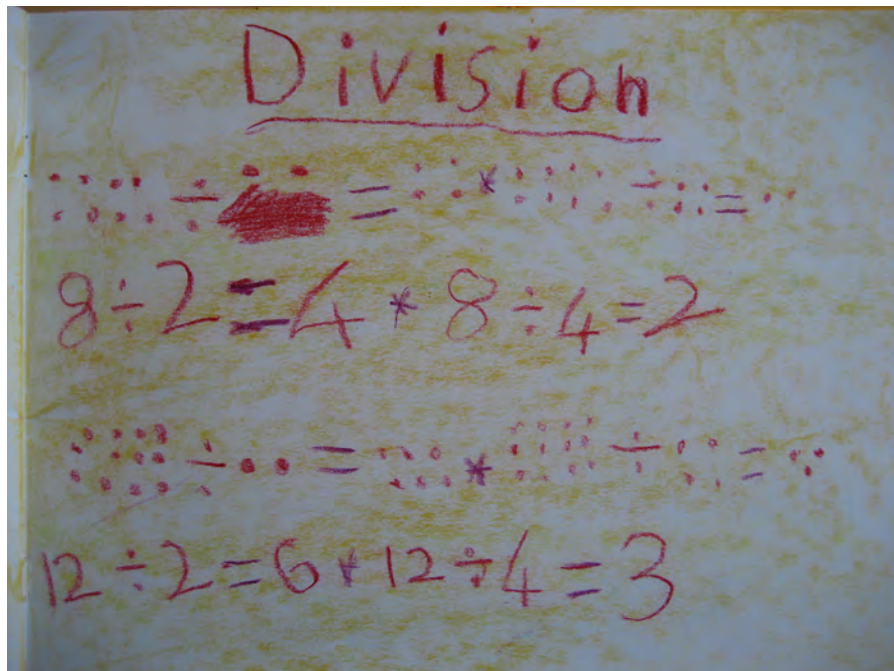 Division
8÷2=4*8÷4=2
12÷2=6*12÷4=3